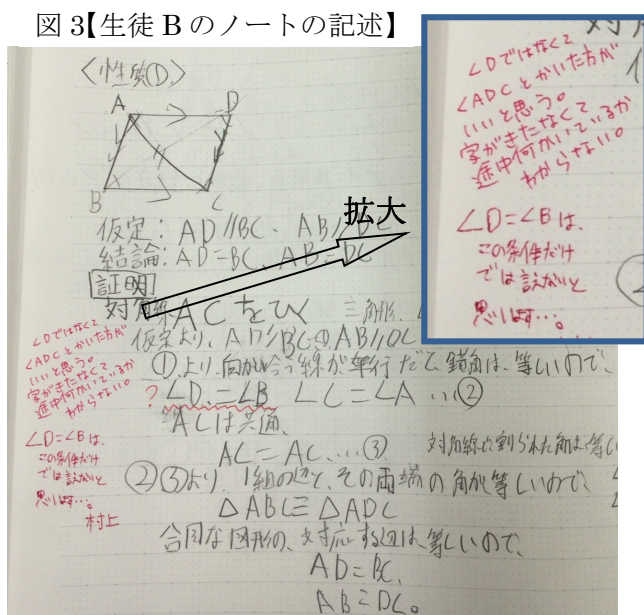 図3【生徒Bのノートの記述】
〈性質①〉
A D
B C
仮定:AD//BC、AB//DC
結論:AD=BC、AB=DC
証明
対角線ACをひく 三角形、
仮定より、AD//BC①AB//DC
①より、向かい合う線が平行だと、錯角は、等しいので、
? ∠D=∠B ∠C=∠A …②
ACは共通、
AC=AC、…③
対角線で割られた角は、等し
②③より、1組の辺と、その両端の角が、等しいので、
△ABC≡△ADC
合同な図形の、対応する辺は、等しいので、
AD=BC、
AB=DC。
∠Dではなくて
∠ADCとかいた方が
いいと思う。
字がきたなくて
途中何かいているか
わからない。
∠D=∠Bは、
この条件だけ
では言えないと
思います…。
村上
拡大
∠Dではなくて
∠ADCとかいた方が
いいと思う。
字がきたなくて
途中何かいているか
わからない。
∠D=∠Bは、
この条件だけ
では言えないと
思います…。